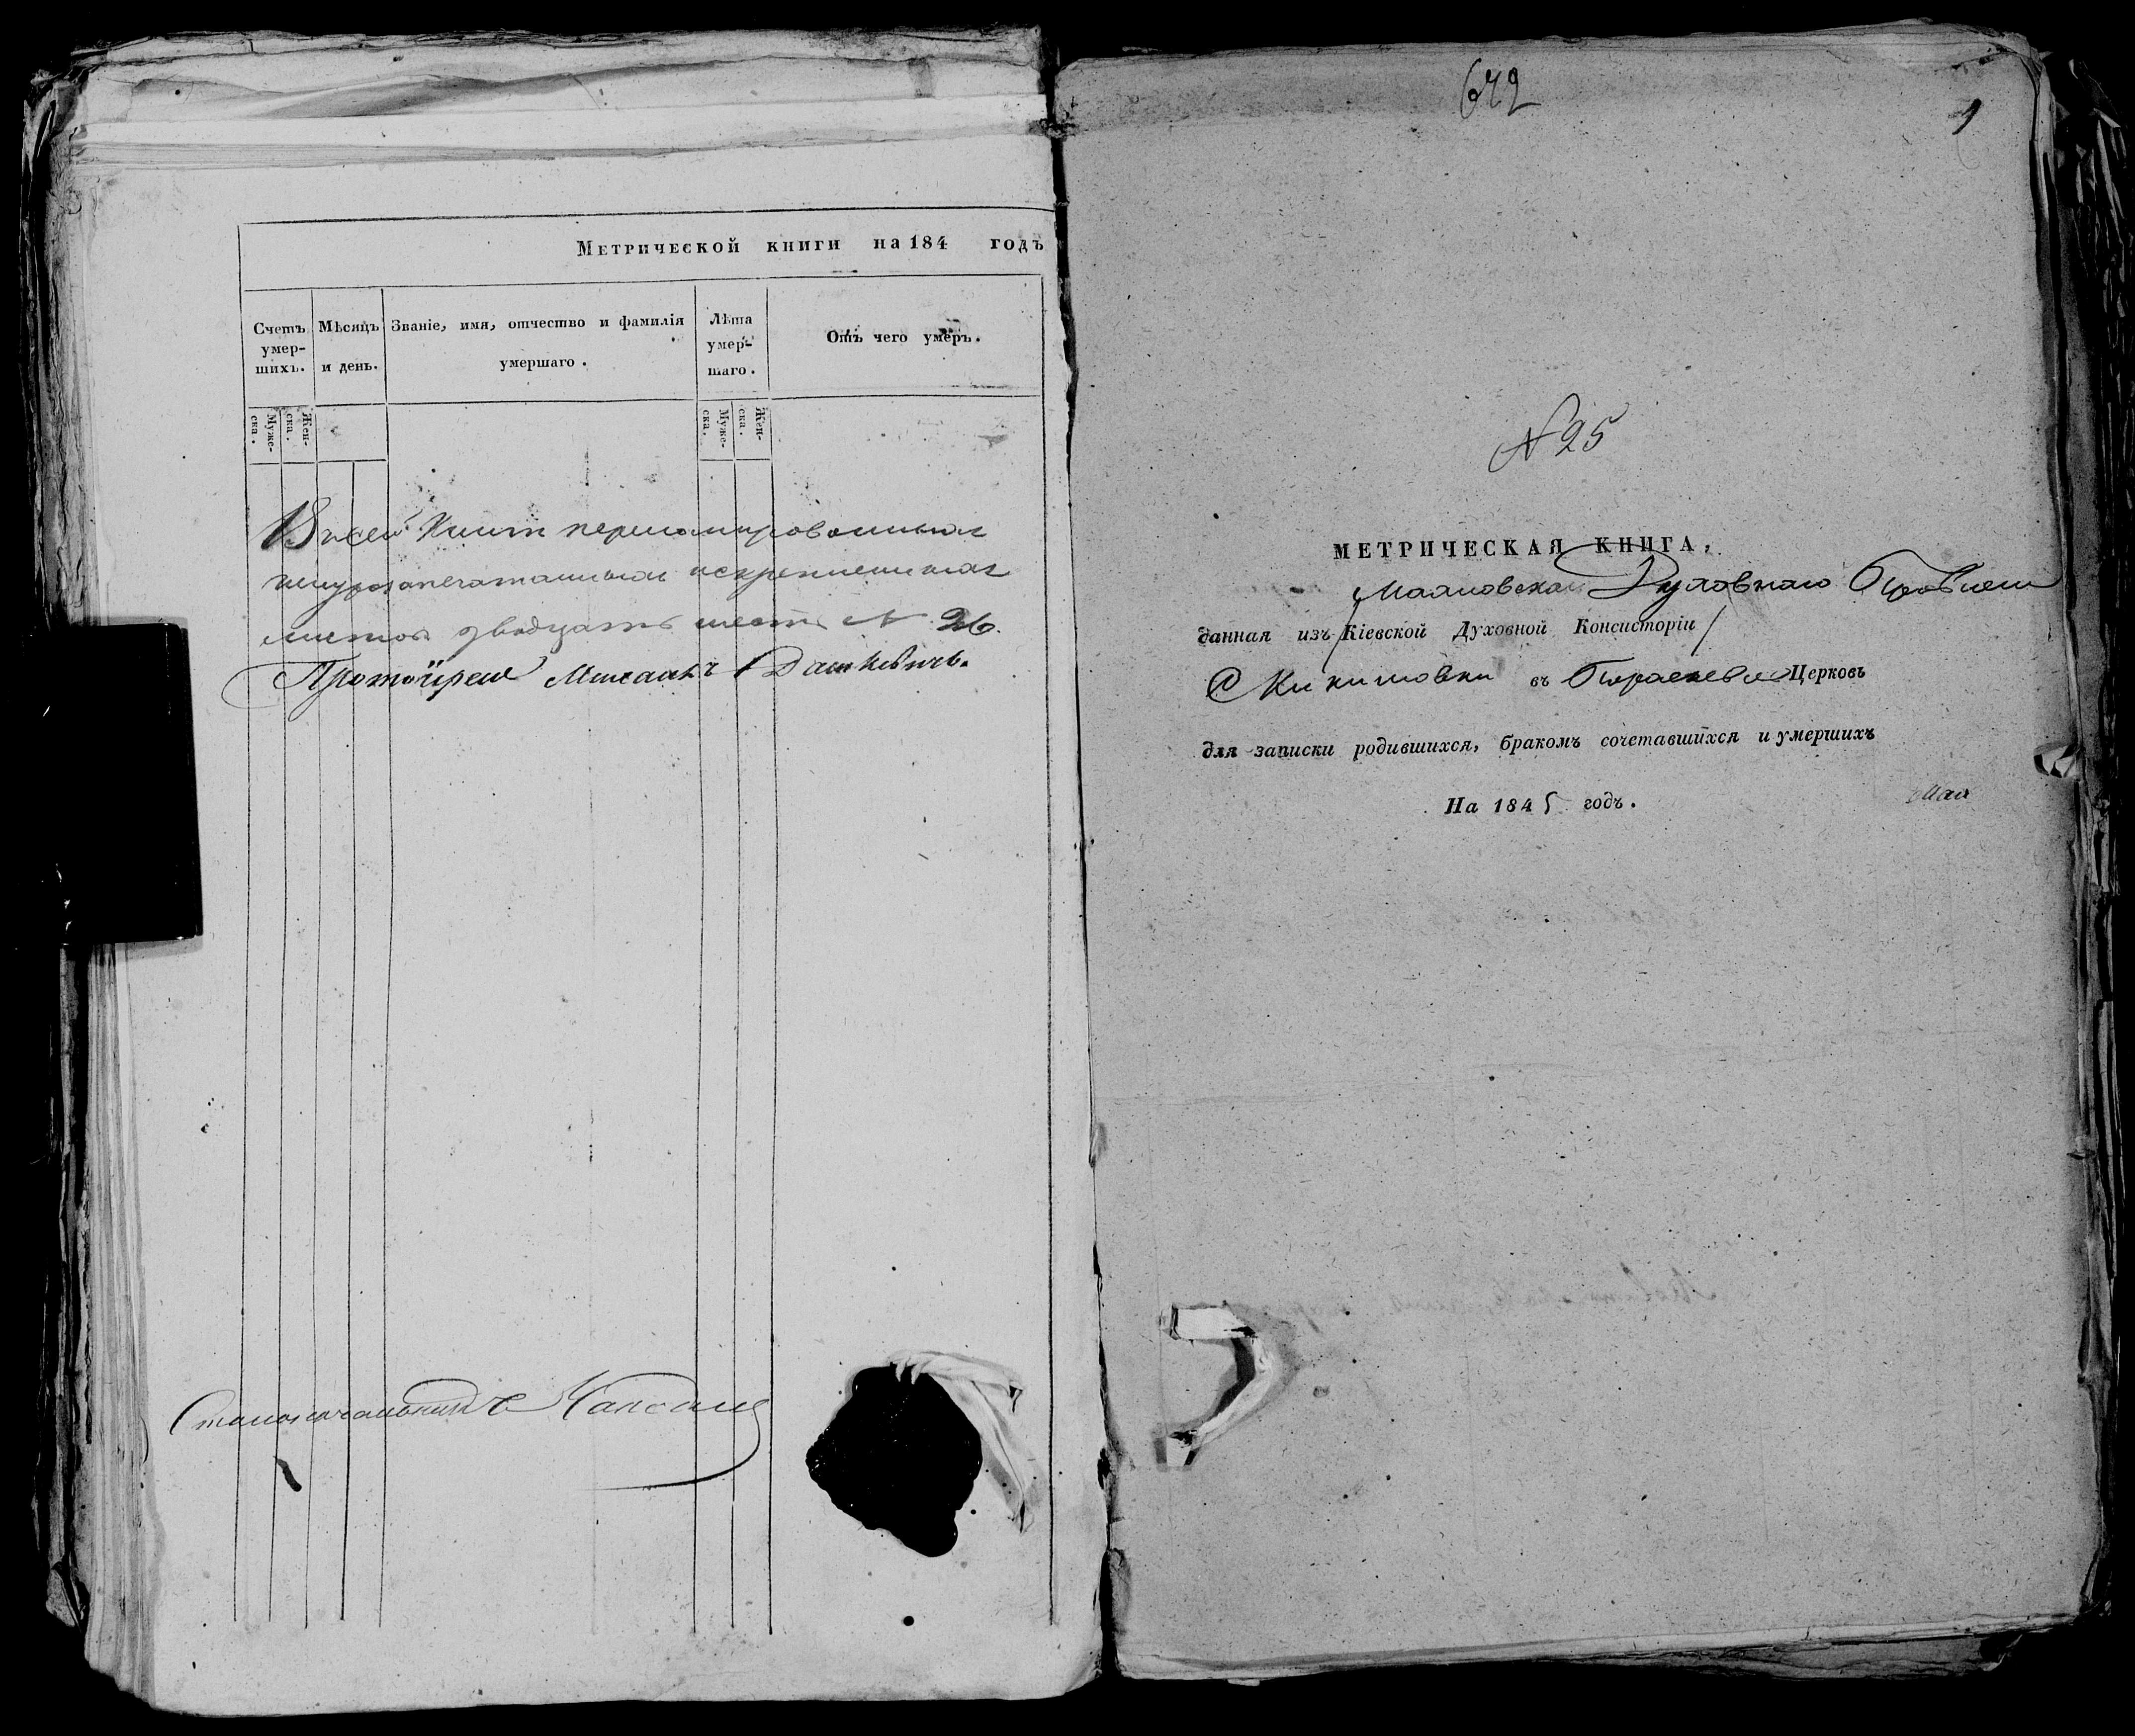 Метрической книги на 184 годъ
Счетъ умер-шихъ.
Мѣсяцъ и день.
Званіе, имя, отчество и фамилія умершаго.
Лѣта умер-шаго.
Отъ чего умеръ.
Муже-ска.
Жен-ска.
Муже-ска.
Жен-ска.
В сей Книги перенумерованныхъ
шнурозапечатанныхъ искрепленныхъ
листовъ двадцать шесть N 26.
Протоіерей Михаилъ Дашкевичъ.
Столоначальникъ
672
1
N 25
МЕТРИЧЕСКАЯ КНИГА,
Духовнаго Правленія
данная изъ Кіевской Духовной Консисторіи
С въ Параскевіев Церковь
для записки родившихся, бракомъ сочетавшихся и умершихъ
На 1845 годъ.